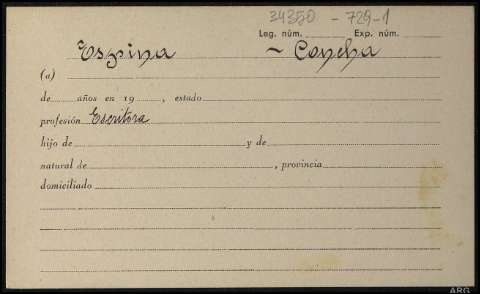 34350 - 729-1
Leg. núm. Exp. núm.
Espina ~ Concha
(a)
de años en 19 , estado
profesión Escritora
hijo de y de
natural de , provincia
domiciliado
ARG